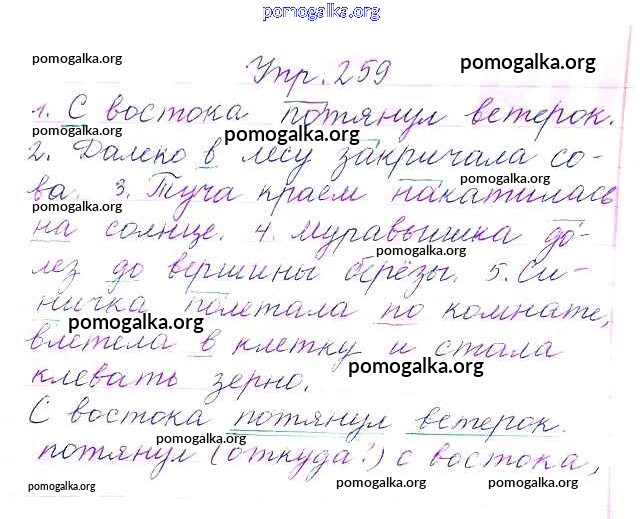 pomogalka.org
pomogalka.org
Упр. 259
pomogalka.org
1. С востока потянул ветерок.
pomogalka.org
pomogalka.org
2. Далеко в лесу закричала со-
pomogalka.org
ва. 3. Туча краем накатилась
pomogalka.org
на солнце. 4. Муравьишка до-
pomogalka.org
лез до вершины берёзы. 5. Си-
ничка полетала по комнате,
pomogalka.org
влетела в клетку и стала
pomogalka.org
клевать зерно.
С востока потянул ветерок.
pomogalka.org
потянул (откуда?) с востока,
pomogalka.org
pomogalka.org
pomogalka.org